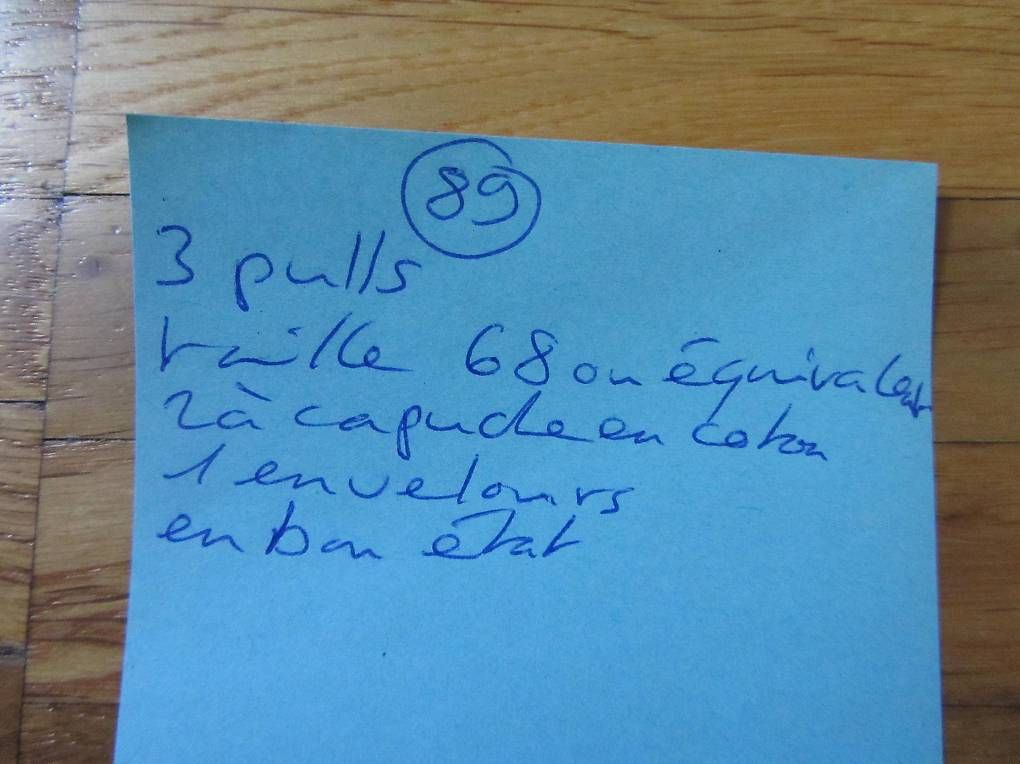 89
3 pulls
taille 68 ou équivalent
2 à capuche en coton
1 en velours
en bon état